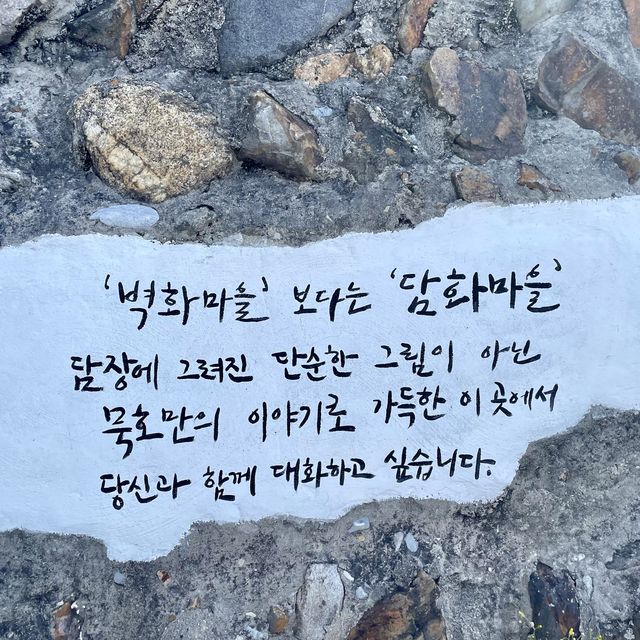 '벽화마을' 보다는 '담화마을'
담장에 그려진 단순한 그림이 아닌
묵호만의 이야기로 가득한 이 곳에서
당신과 함께 대화하고 싶습니다.